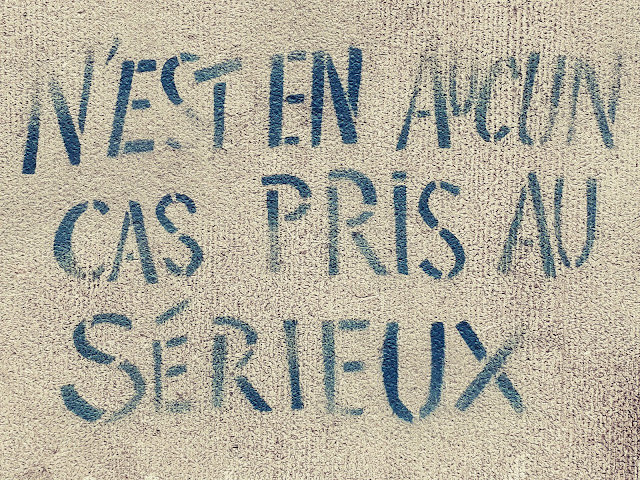 N'EST EN AUCUN
CAS PRIS AU
SÉRIEUX